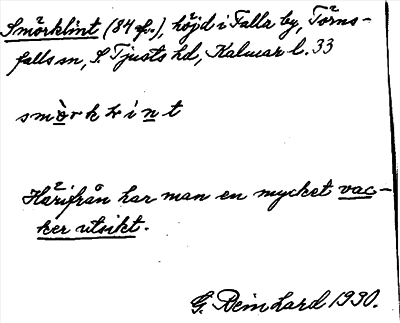 Smörklint (84 f.), höjd i Falla by, Törns-
falls sn, S. Tjusts hd, Kalmar l. 33
smòrkłint
Härifrån har man en mycket vac-
ker utsikt.
G. Beinhard 1930.